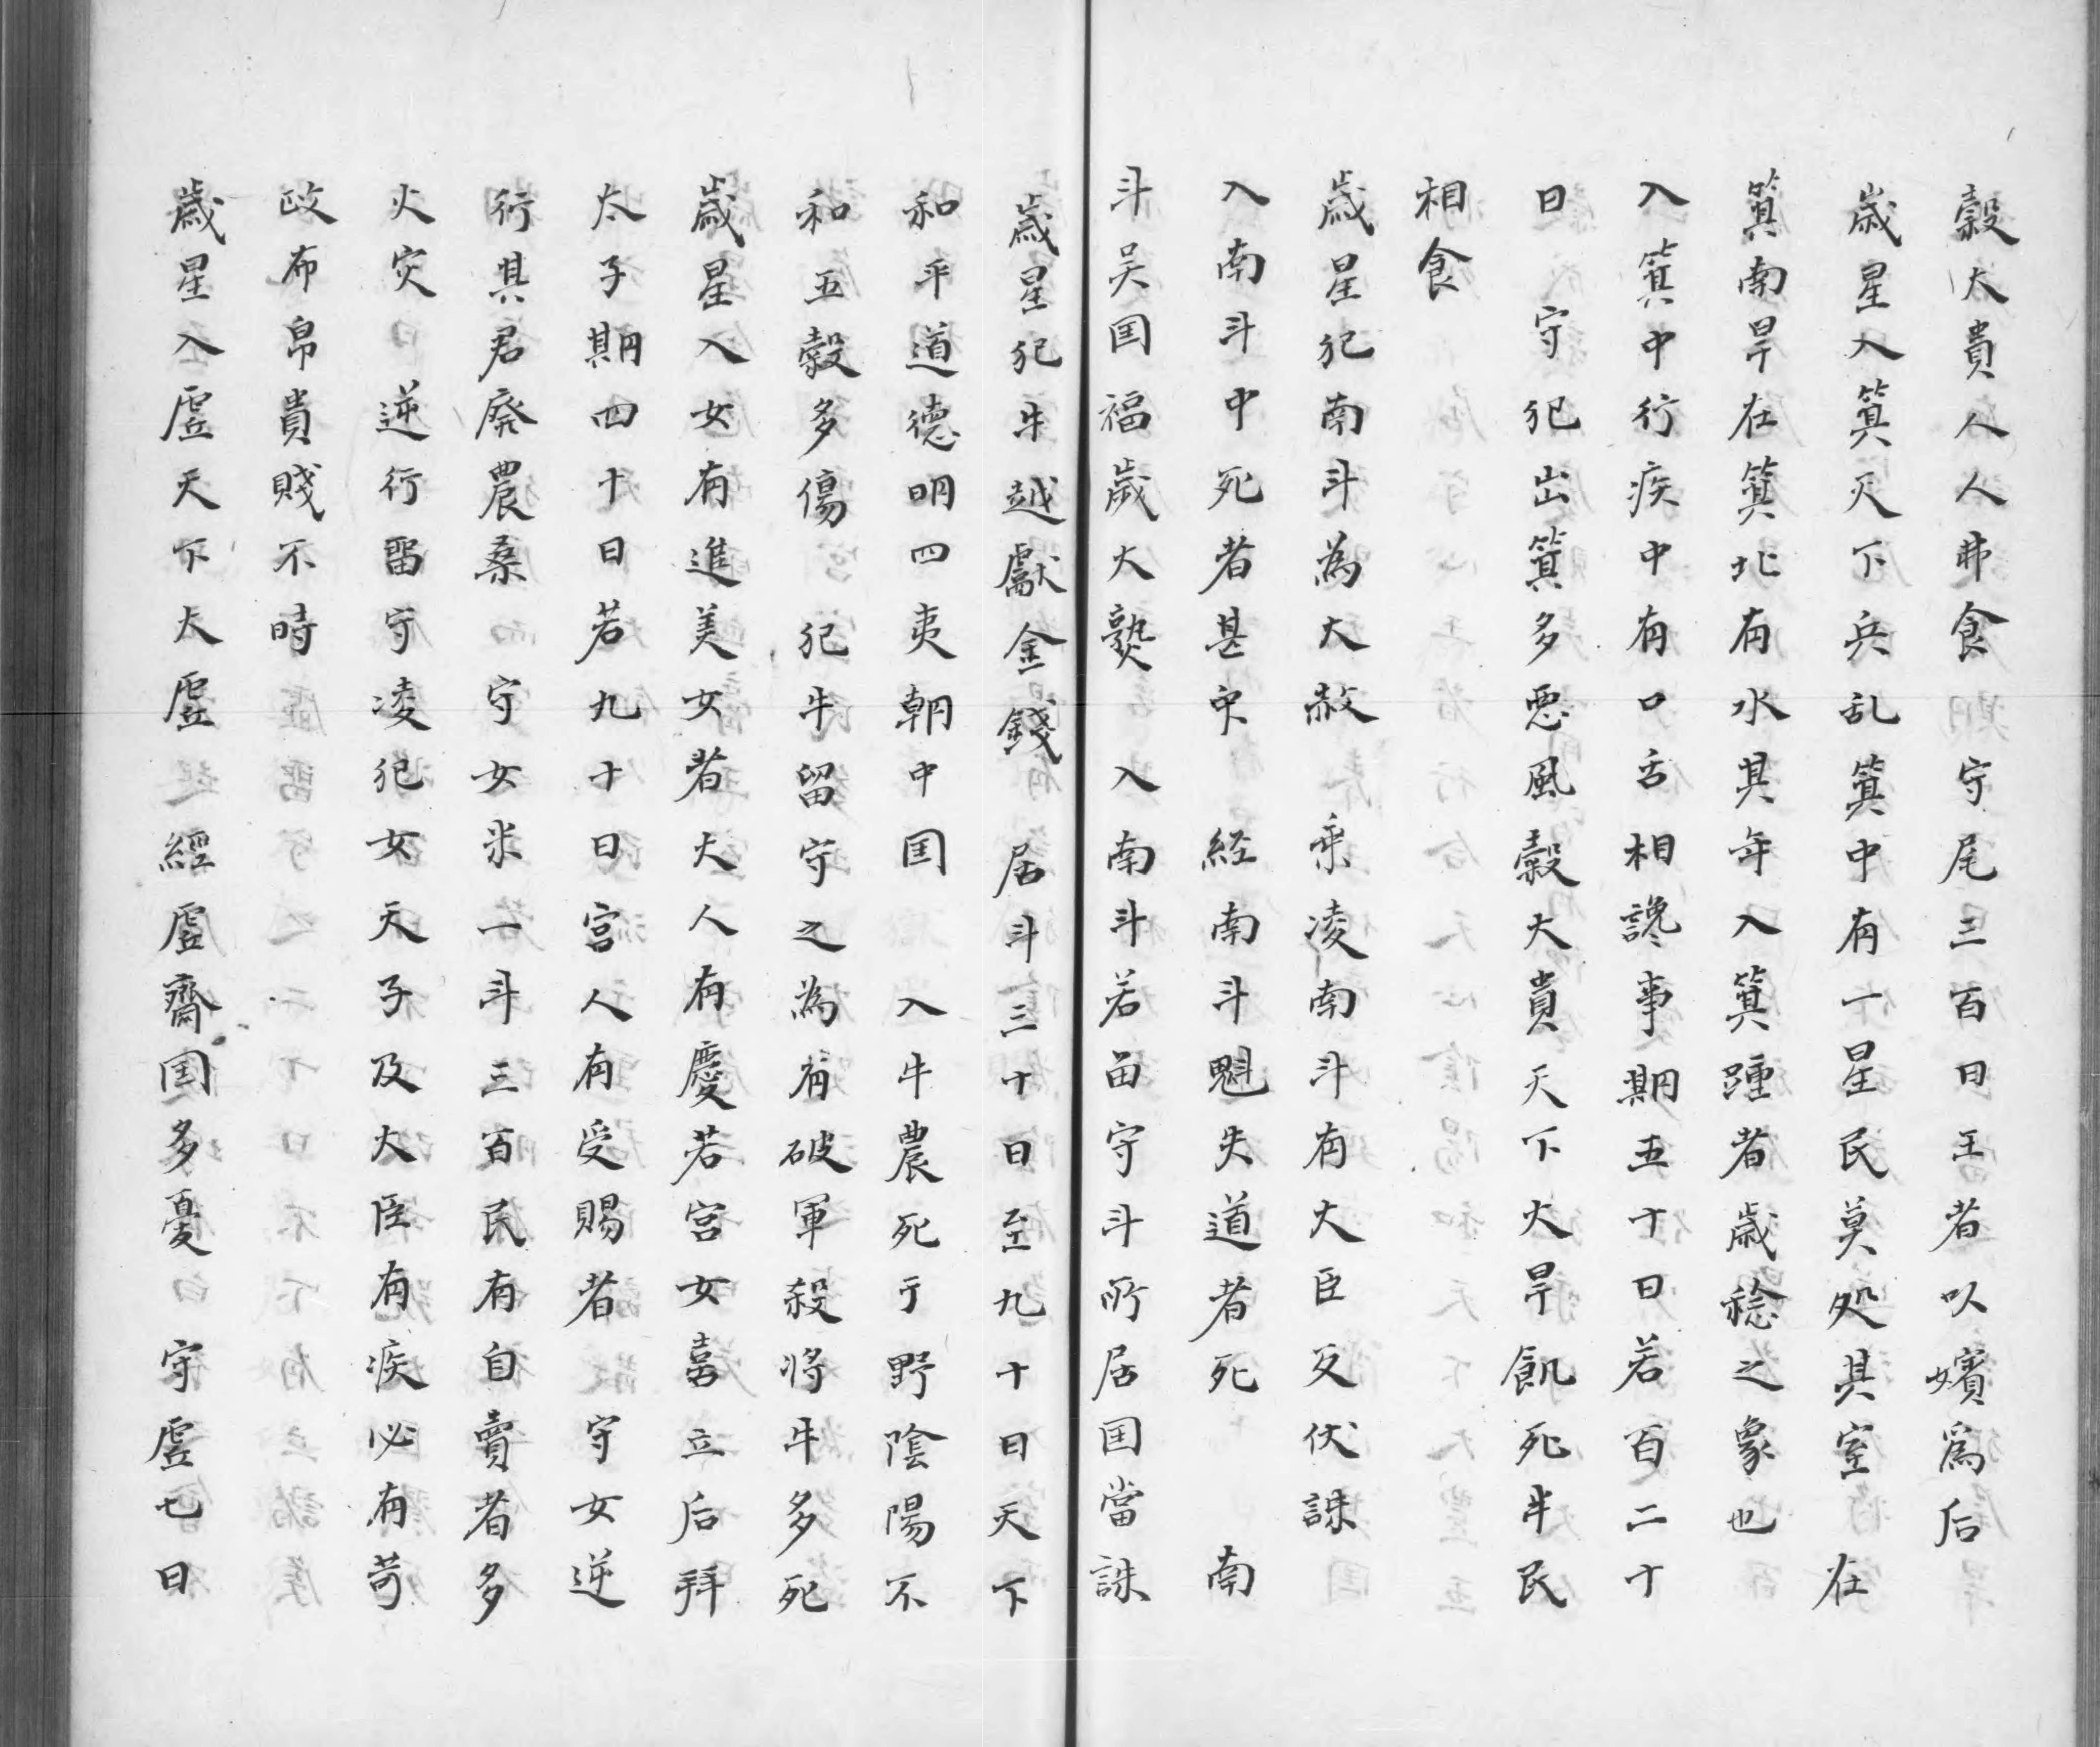 穀大貴人人弗食　守尾三百日王者以嬪爲后
歳星入箕天下兵乱箕中有一星民莫処其室　在
箕南旱在箕北有水其年入箕踵者歳稔之象也
入箕中行疾中有口舌相讒事期五十日若百二十
日　守犯出箕多悪風穀大貴天下大旱飢死半民
相食
歳星犯南斗為大赦　乗凌南斗有大臣反伏誅
入南斗中死者甚中　経南斗魁失道者死　南
斗吴国福歳大熟　入南斗若畄守斗所居国當誅
歳星犯牛越獻金錢　居斗三十日至九十日天下
和平道徳明四夷朝中国　入牛農死于野陰陽不
和五穀多傷　犯牛留守之為有破軍殺将牛多死
歳星入女有進美女者大人有慶若宮女喜立后拜
太子期四十日若九十日宮人有受賜者　守女逆
行其君廃農桑　守女米一斗三百民有自賣者多
火災　逆行畱守凌犯女天子及大臣有疾必有苛
政布帛貴賤不時
歳星入虚天下大虚　經虚齋国多憂　守虚七日